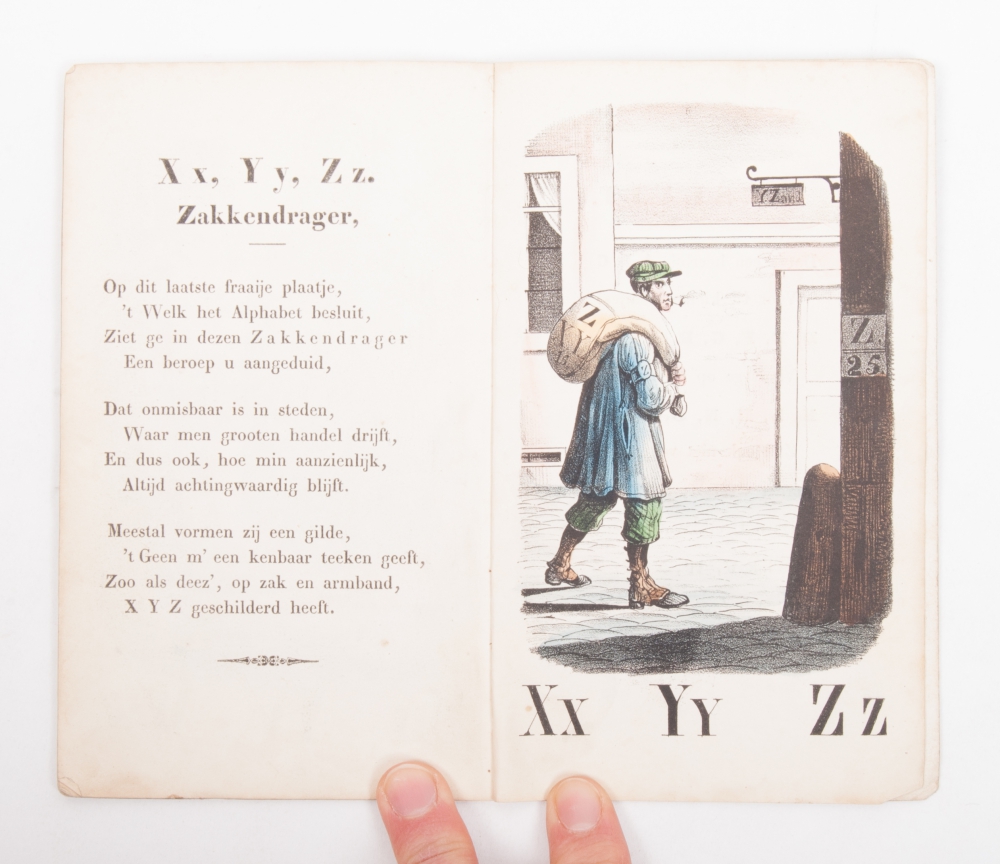 Xx, Yy, Zz.
Zakkendrager,
Op dit laatste fraaije plaatje,
't Welk het Alphabet besluit,
Ziet ge in dezen Zakkendrager
Een beroep u aangeduid,
Dat onmisbaar is in steden,
Waar men grooten handel drijft,
En dus ook, hoe min aanzienlijk,
Altijd achtingwaardig blijft.
Meestal vormen zij een gilde,
't Geen m' een kenbaar teeken geeft,
Zoo als deez', op zak en armband,
X Y Z geschilderd heeft.
Z
Z.
25.
Xx Yy Zz